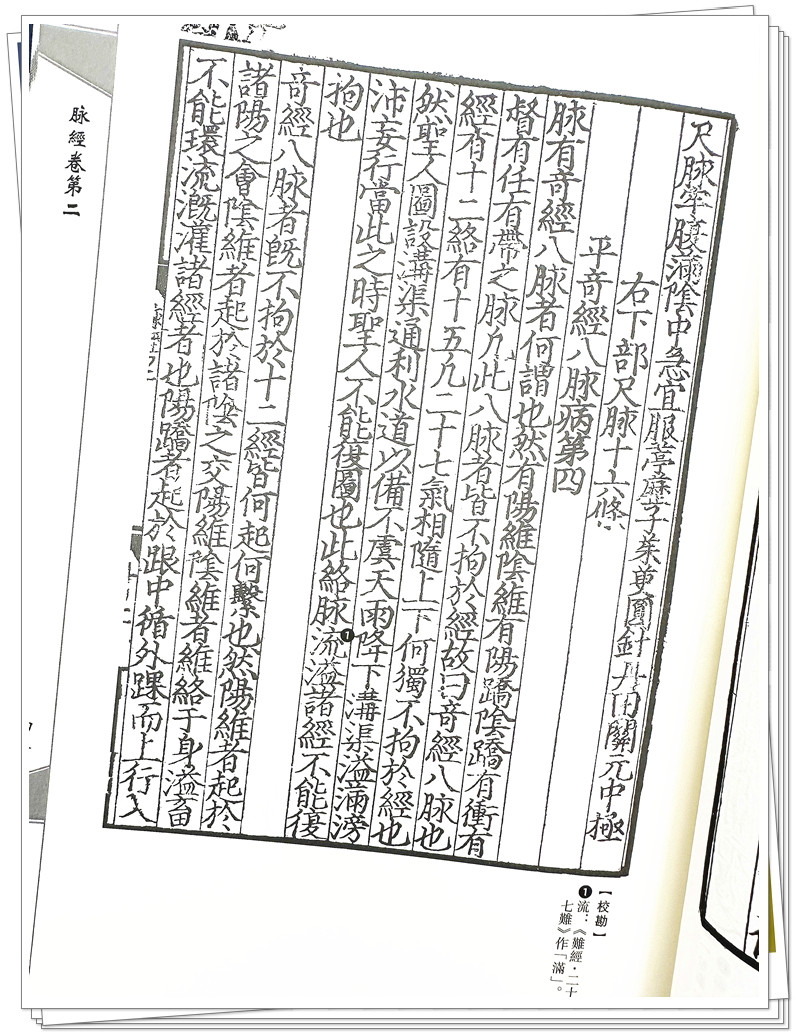 尺脉牢腹滿陰中急宜服葶藶子茱萸圓針丹田關元中極
右下部尺脉十六條
平奇經八脉病第四
脉有奇經八脉者何謂也然有陽維陰維有陽蹻陰蹻有衝有
督有任有帶之脉凡此八脉者皆不拘於經故曰奇經八脉也
經有十二絡有十五凡二十七氣相隨上下何獨不拘於經也
然聖人圖設溝渠通利水道以備不虞天雨降下溝渠溢滿滂
沛妄行當此之時聖人不能復圖也此絡脉流❶溢諸經不能復
拘也
奇經八脉者既不拘於十二經皆何起何繫也然陽維者起於
諸陽之會陰維者起於諸陰之交陽維陰維者維絡于身溢畜
不能環流溉灌諸經者也陽蹻者起於跟中循外踝而上行入
【校勘】
❶流：《難經·二十
七難》作「滿」。
脉經卷第二